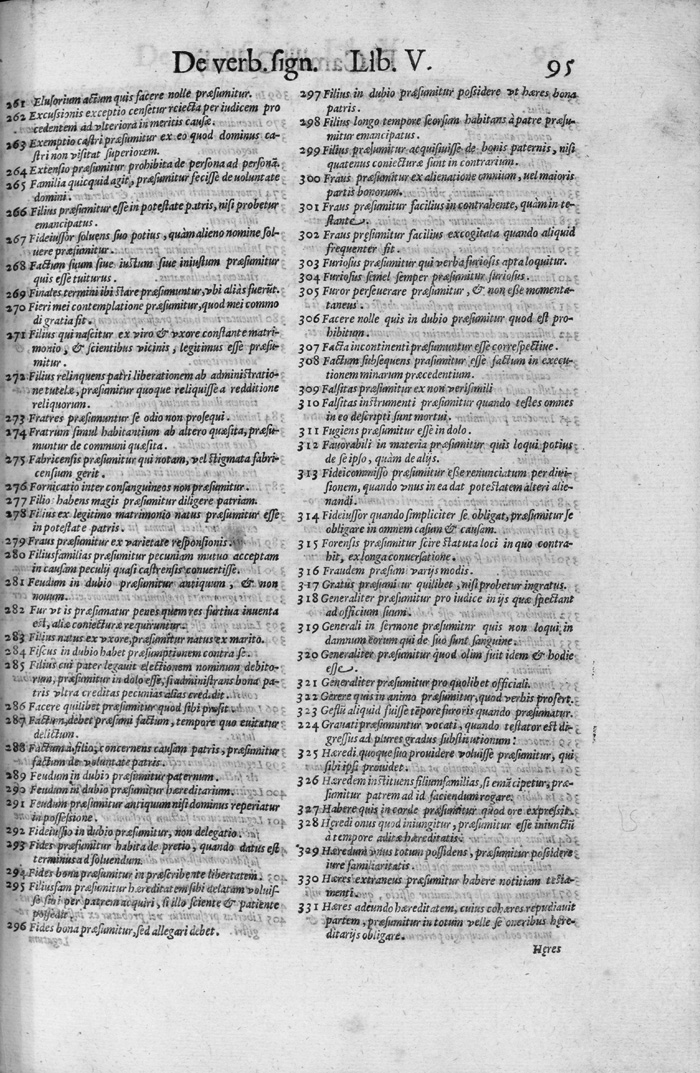 De verb. sign. Lib. V. 95
261 Elusorium actum quis facere nolle præsumitur.
262 Excussionis exceptio censetur reiecta per iudicem pro
cedentem ad vlteriora in meritis causæ.
263 Exemptio castri præsumitur ex eo quod dominus ca-
stri non visitat superiorem.
264 Extensio præsumitur prohibita de persona ad personā.
265 Familia quicquid agit, præsumitur fecisse de uoluntate
domini.
266 Filius præsumitur esse in potestate patris, nisi probetur
emancipatus.
267 Fideiussor soluens suo potius, quàm alieno nomine sol-
uere præsumitur.
268 Factum suum siue iustum siue iniustum præsumitur
quis esse tuiturus.
269 Finales termini ibi stare præsumuntur, vbi aliàs fuerūt.
270 Fieri mei contemplatione præsumitur, quod mei commo
di gratia sit.
271 Filius qui nascitur ex viro & vxore constante matri-
monio, & scientibus vicinis, legitimus esse præsu-
mitur.
272 Filius relinquens patri liberationem ab administratio-
ne tutelæ, præsumitur quoque reliquisse a redditione
reliquorum.
273 Fratres præsumuntur se odio non prosequi.
274 Fratrum simul habitantium ab altero quæsita, præsu-
muntur de communi quæsita.
275 Fabricensis præsumitur qui notam, vel stigmata fabri-
censium gerit.
276 Fornicatio inter consanguineos non præsumitur.
277 Filio habens magis præsumitur diligere patriam.
278 Filius ex legitimo matrimonio natus præsumitur esse
in potestate patris.
279 Fraus præsumitur ex varietate responsionis.
280 Filiusfamilias præsumitur pecuniam mutuo acceptam
in causam peculij quasi castrensis conuertisse.
281 Feudum in dubio præsumitur antiquum, & non
nouum.
282 Fur vt is præsumatur penes quem res furtiua inuenta
est, aliæ coniecturæ requiruntur.
283 Filius natus ex vxore, præsumitur natus ex marito.
284 Fiscus in dubio habet præsumptionem contra se.
285 Filius cui pater legauit electionem nominum debito-
rum, præsumitur in dolo esse, si administrans bona pa-
tris vltra creditas pecunias alias credidit.
286 Facere quilibet præsumitur quod sibi prosit.
287 Factum debet præsumi factum, tempore quo euitatur
delictum.
288 Factum à filio, concernens causam patris, præsumitur
factum de voluntate patris.
289 Feudum in dubio præsumitur paternum.
290 Feudum in dubio præsumitur hæreditarium.
291 Feudum præsumitur antiquum nisi dominus reperiatur
in possessione.
292 Fideiussio in dubio præsumitur, non delegatio.
293 Fides præsumitur habita de pretio, quando datus est
terminus ad soluendum.
294 Fides bona præsumitur in præscribente libertatem.
295 Filiusfam præsumitur hæreditatem sibi delatam voluis-
se sibi per patrem acquiri, si illo sciente & patiente
possedit.
296 Fides bona præsumitur, sed allegari debet.
297 Filius in dubio præsumitur possidere vt hæres bona
patris.
298 Filius longo tempore seorsum habitans à patre præsu-
mitur emancipatus.
299 Filius præsumitur acquisiuisse de bonis paternis, nisi
quatenus coniecturæ sunt in contrarium.
300 Fraus præsumitur ex alienatione omnium, uel maioris
partis bonorum.
301 Fraus præsumitur facilius in contrahente, quàm in te-
stante.
302 Fraus præsumitur facilius excogitata quando aliquid
frequenter fit.
303 Furiosus præsumitur qui verba furiosis apta loquitur.
304 Furiosus semel semper præsumitur furiosus.
305 Furor perseuerare præsumitur, & non esse momenta-
taneus.
306 Facere nolle quis in dubio præsumitur quod est pro-
hibitum.
307 Facta incontinenti præsumuntur esse correspectiue.
308 Factum subsequens præsumitur esse factum in execu-
tionem minarum præcedentium.
309 Falsitas præsumitur ex non verisimili
310 Falsitas instrumenti præsumitur quando testes omnes
in eo descripti sunt mortui.
311 Fugiens præsumitur esse in dolo.
312 Fauorabili in materia præsumitur quis loqui potius
de se ipso, quàm de alijs.
313 Fideicommisso præsumitur esse renunciatum per diui-
sionem, quando vnus in ea dat potestatem alteri alie-
nandi.
314 Fideiussor quando simpliciter se obligat, præsumitur se
obligare in omnem casum & causam.
315 Forensis præsumitur scire statuta loci in quo contra-
hit, ex longa conuersatione.
316 Fraudem præsumi varijs modis.
317 Gratus præsumitur quilibet, nisi probetur ingratus.
318 Generaliter præsumitur pro iudice in ijs quæ spectant
ad officium suum.
319 Generali in sermone præsumitur quis non loqui in
damnum eorum qui de suo sunt sanguine.
320 Generaliter præsumitur quod olim fuit idem & hodie
esse.
321 Generaliter præsumitur pro quolibet officiali.
322 Gerere quis in animo præsumitur, quod verbis profert.
323 Gessisse aliquid fuisse tēpore furoris quando præsumatur.
224 Grauati præsumuntur vocati, quando testator est di-
gressus ad plures gradus substitutionum:
325 Hæredi quoque suo prouidere voluisse præsumitur, qui
sibi ipsi prouidet.
326 Hæredem instituens filiumfamilias, si emācipetur, præ-
sumitur patrem ad id faciendum rogare.
327 Habere quis in corde præsumitur quod ore expressit.
328 Heredi onus quod iniungitur, præsumitur esse iniunctū
à tempore aditæ hæreditatis.
329 Hæredum vnus totum possidens, præsumitur possidere
iure familiaritatis.
330 Hæres extraneus præsumitur habere notitiam testa-
menti.
331 Hæres adeundo hæreditatem, cuius cohæres repudiauit
partem, præsumitur in totum velle se oneribus hære-
ditarijs obligare.
Hęres